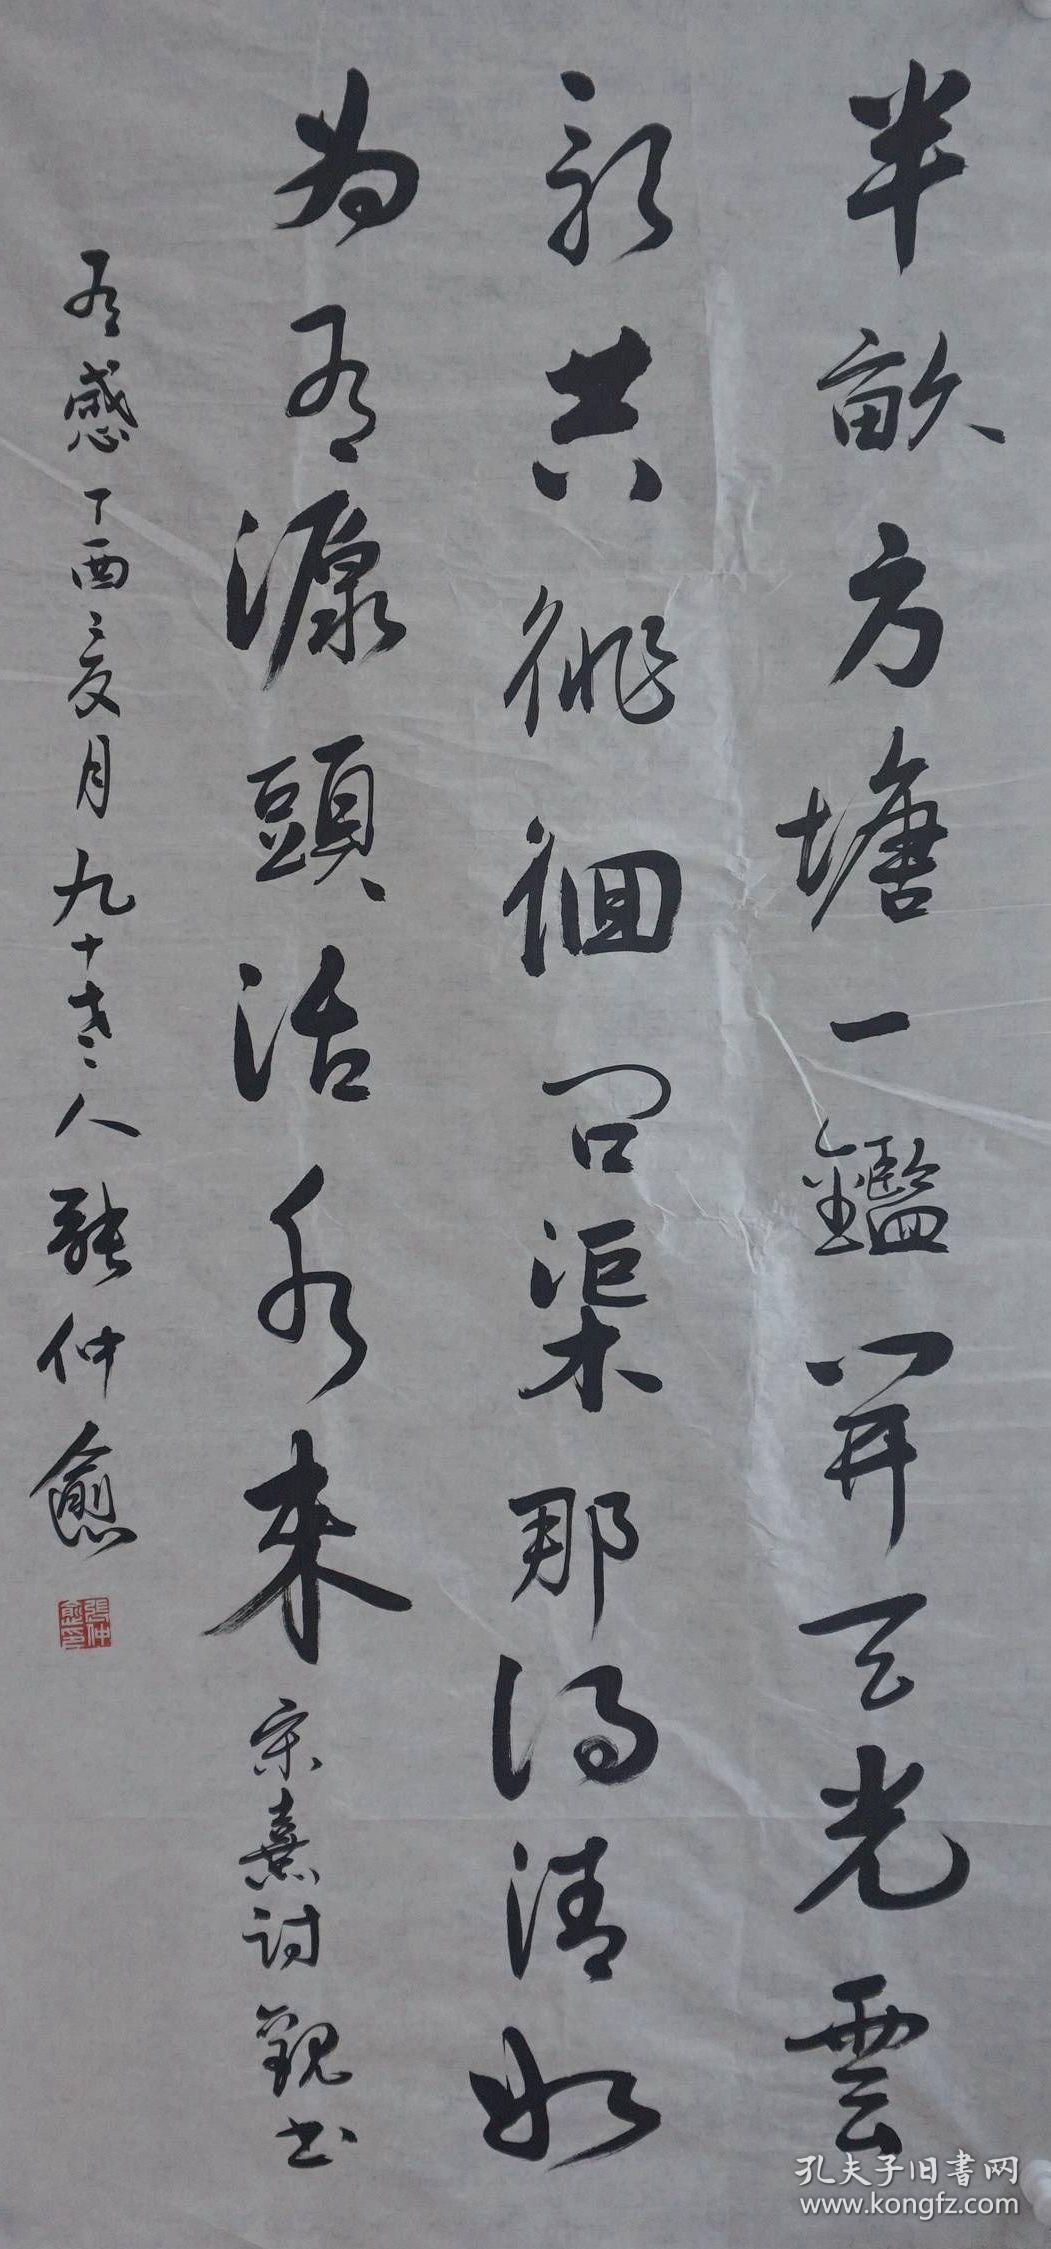 半畝方塘一鑑開天光雲
影共徘徊問渠那得清如
為有源頭活水來 宋熹詩觀書
有感 丁酉亥月 九十老人 張仲愈
張仲愈印
孔夫子旧书网
www.kongfz.com